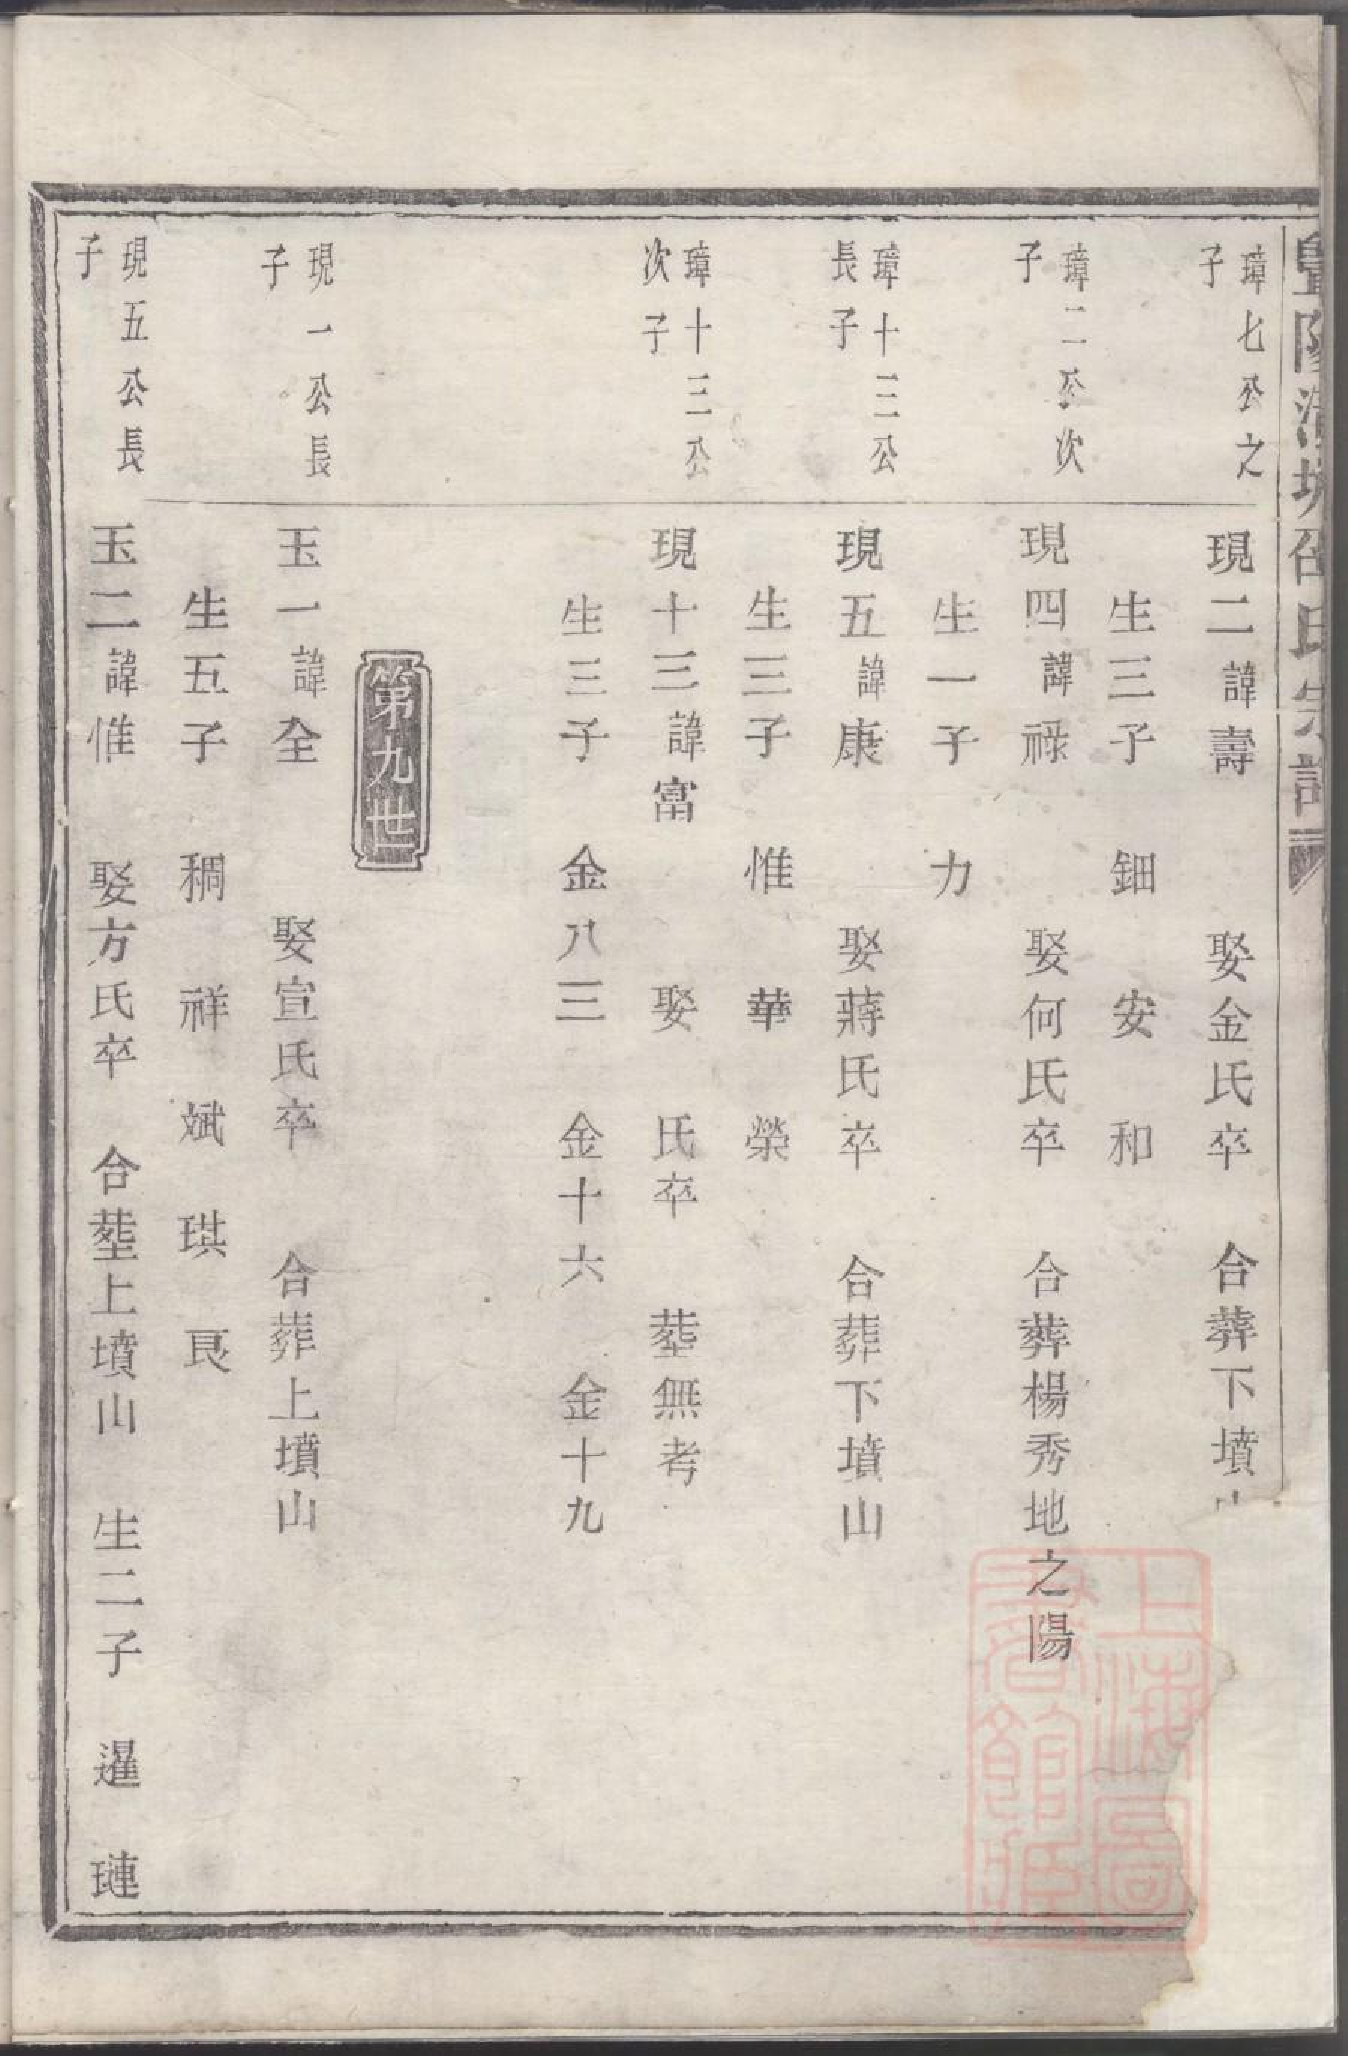 暨陽
邵氏宗譜
璋七公之
子
現二諱壽 娶金氏卒 合葬下墳山
生三子 鈿 安 和
璋二公次
子
現四諱祿 娶何氏卒 合葬楊秀地之陽
生一子 力
璋十三公
長子
現五諱康 娶蔣氏卒 合葬下墳山
生三子 惟 華 榮
璋十三公
次子
現十三諱富 娶 氏卒 塟無考
生三子 金八三 金十六 金十九
第九世
現一公長
子
玉一諱全 娶宣氏卒 合葬上墳山
生五子 稠 祥 斌 琪 艮
現五公長
子
玉二諱惟 娶方氏卒 合塟上墳山 生二子 暹 璉
上海圖
書館藏